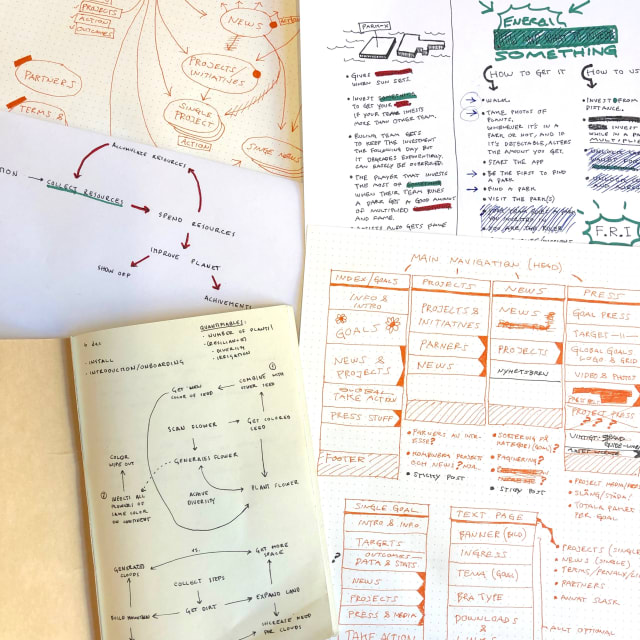 PROJECTS
ACTION
OUTCOMES
NEWS
PARTNERS
PROJECTS/
INITIATIVES
SINGLE
PROJECT
ACTION
TERMS &
SINGLE NEWS
ACCUMULATE RESOURCES
COLLECT RESOURCES
SPEND RESOURCES
IMPROVE PLANET
SHOW OFF
ACHIEVEMENTS
PARK-X
• GIVES
WHEN SUN SETS
• INVEST
TO GET YOUR
IF YOUR TEAM INVESTS
MORE THAN OTHER TEAM.
• RULING TEAM GETS
TO KEEP THE INVESTMENT
THE FOLLOWING DAY BUT
IT DEGRADES EXPONENTIALLY, CAN
EASILY BE OVERRIDED.
• THE PLAYER THAT INVESTS
THE MOST OF
WHEN THEIR TEAM RULES
A PARK GET A GOOD AMOUNT
OF MULTIPLIED
AND FAME.
ALSO GETS FAME
ENERGI
SOMETHING
HOW TO GET IT
• WALK.
• TAKE PHOTOS OF
PLANTS,
WHENEVER IT'S IN A
PARK OR NOT, AND IF
IT'S DETECTABLE, ALTERS
THE AMOUT YOU GET.
• START THE APP
• BE THE FIRST TO FIND
A PARK
• FIND A PARK
• VISIT THE PARK(S)
HOW TO USE
INVEST FROM
DISTANCE.
INVEST
WHILE IN A PA
MULTIPLIE
F.R.I
MAIN NAVIGATION (HEAD)
INDEX/GOALS
INFO &
INTRO
GOALS
NEWS &
PROJECTS
GLOBAL
TAKE ACTION
PRESS STUFF
FOOTER
PROJECTS
PROJECTS &
INITIATIVES
PARNERS
NEWS
• PARTNERS AN INTRESSE?
• KOMBINERA PROJECT
OCH NEWS?
• STICKY POST
NEWS
NEWS
PROJECTS
NYHETSBREV
• SORTERING PÅ
KATEGORI (GOAL)?
• PAGINERING?
• STICKY POST
PRESS
GOAL PRESS
TARGET
GLOBAL GOALS
LOGO & GRID
VIDEO & PHOTO
PROJECT PRESS
? ? ?
VIKTIGT:
• PROJECT MEDIA/PRESS
• SLÄNG/STÖDA?
• TOTALA PAKET
PER GOAL
SINGLE GOAL
INTRO & INFO
TARGETS
OUTCOMES
DATA & STATS
NEWS
PROJECTS
PRESS & MEDIA
TAKE ACTION
TEXT PAGE
BANNER (BILD)
INGRESS
TEMA (GOAL)
BRA TYPE
DOWNLOADS
&
• PROJECTS (SINGLE)
• NEWS (SINGLE)
• TERMS/PENALY/E
• PARTNERS
• ANNAT SLASK
ALLT OPTIONAL
QUANTIFIABLES:
• NUMBER OF PLANTS!
• (RESILIANCE)
• DIVERSITY
• IRRIGATION
6 dec
- INSTALL
- INTRODUCTION/ONBOARDING
①
GET NEW
COLOR OF SEED
COMBINE WITH
OTHER SEED
SCAN FLOWER
GET COLORED
SEED
GENERATES FLOWER
COLOR
WIPE OUT
②
INFECTS ALL
FLOWERS OF
SAME COLOR
ON CONTINENT
ACHIVE
DIVERSITY
PLANT FLOWER
VS.
GENERATES
CLOUDS
GET MORE
SPACE
COLLECT STEPS
GET DIRT
EXPAND LAND
BUILD MOUNTAIN
INCREASE NEED
FOR CLOUDS